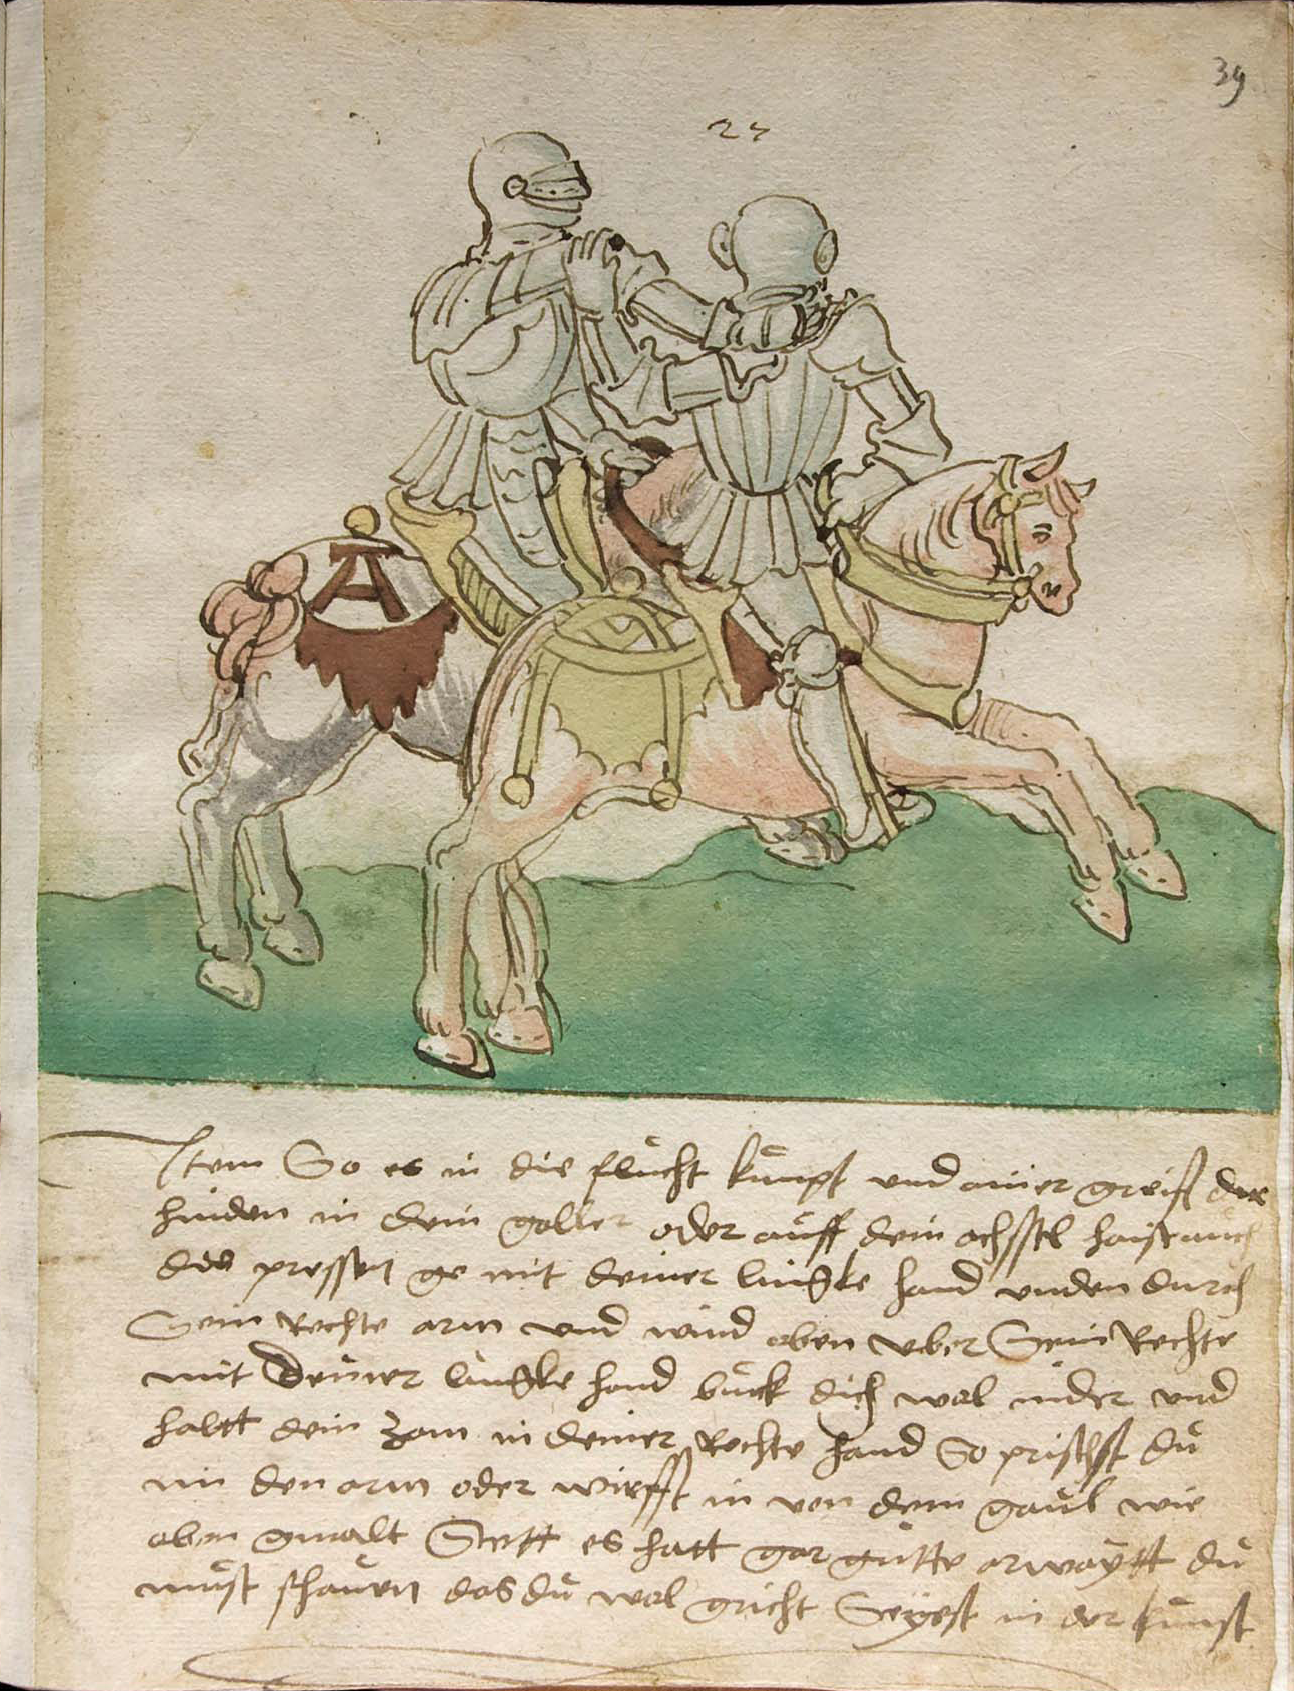 39
27
Item So es in die flücht kümpt vnd ainer greift der
hinden in dein goller oder aüff dein achsstel haist auch
des pressen ge mit deiner lingke hand vnden durch
Sein Rechte arm vnd wind oben vber Sein Rechte
mit Deiner lingke hand bück dich wol nider vnd
haltt dein zam in deiner Rechte hand So prichsst dü
im den arm oder wirffst in von dem gaül wie
oben gmalt Stett es hatt gar gütte arwaytt dü
müst schaüen das dü wol gricht Seyest in der künst